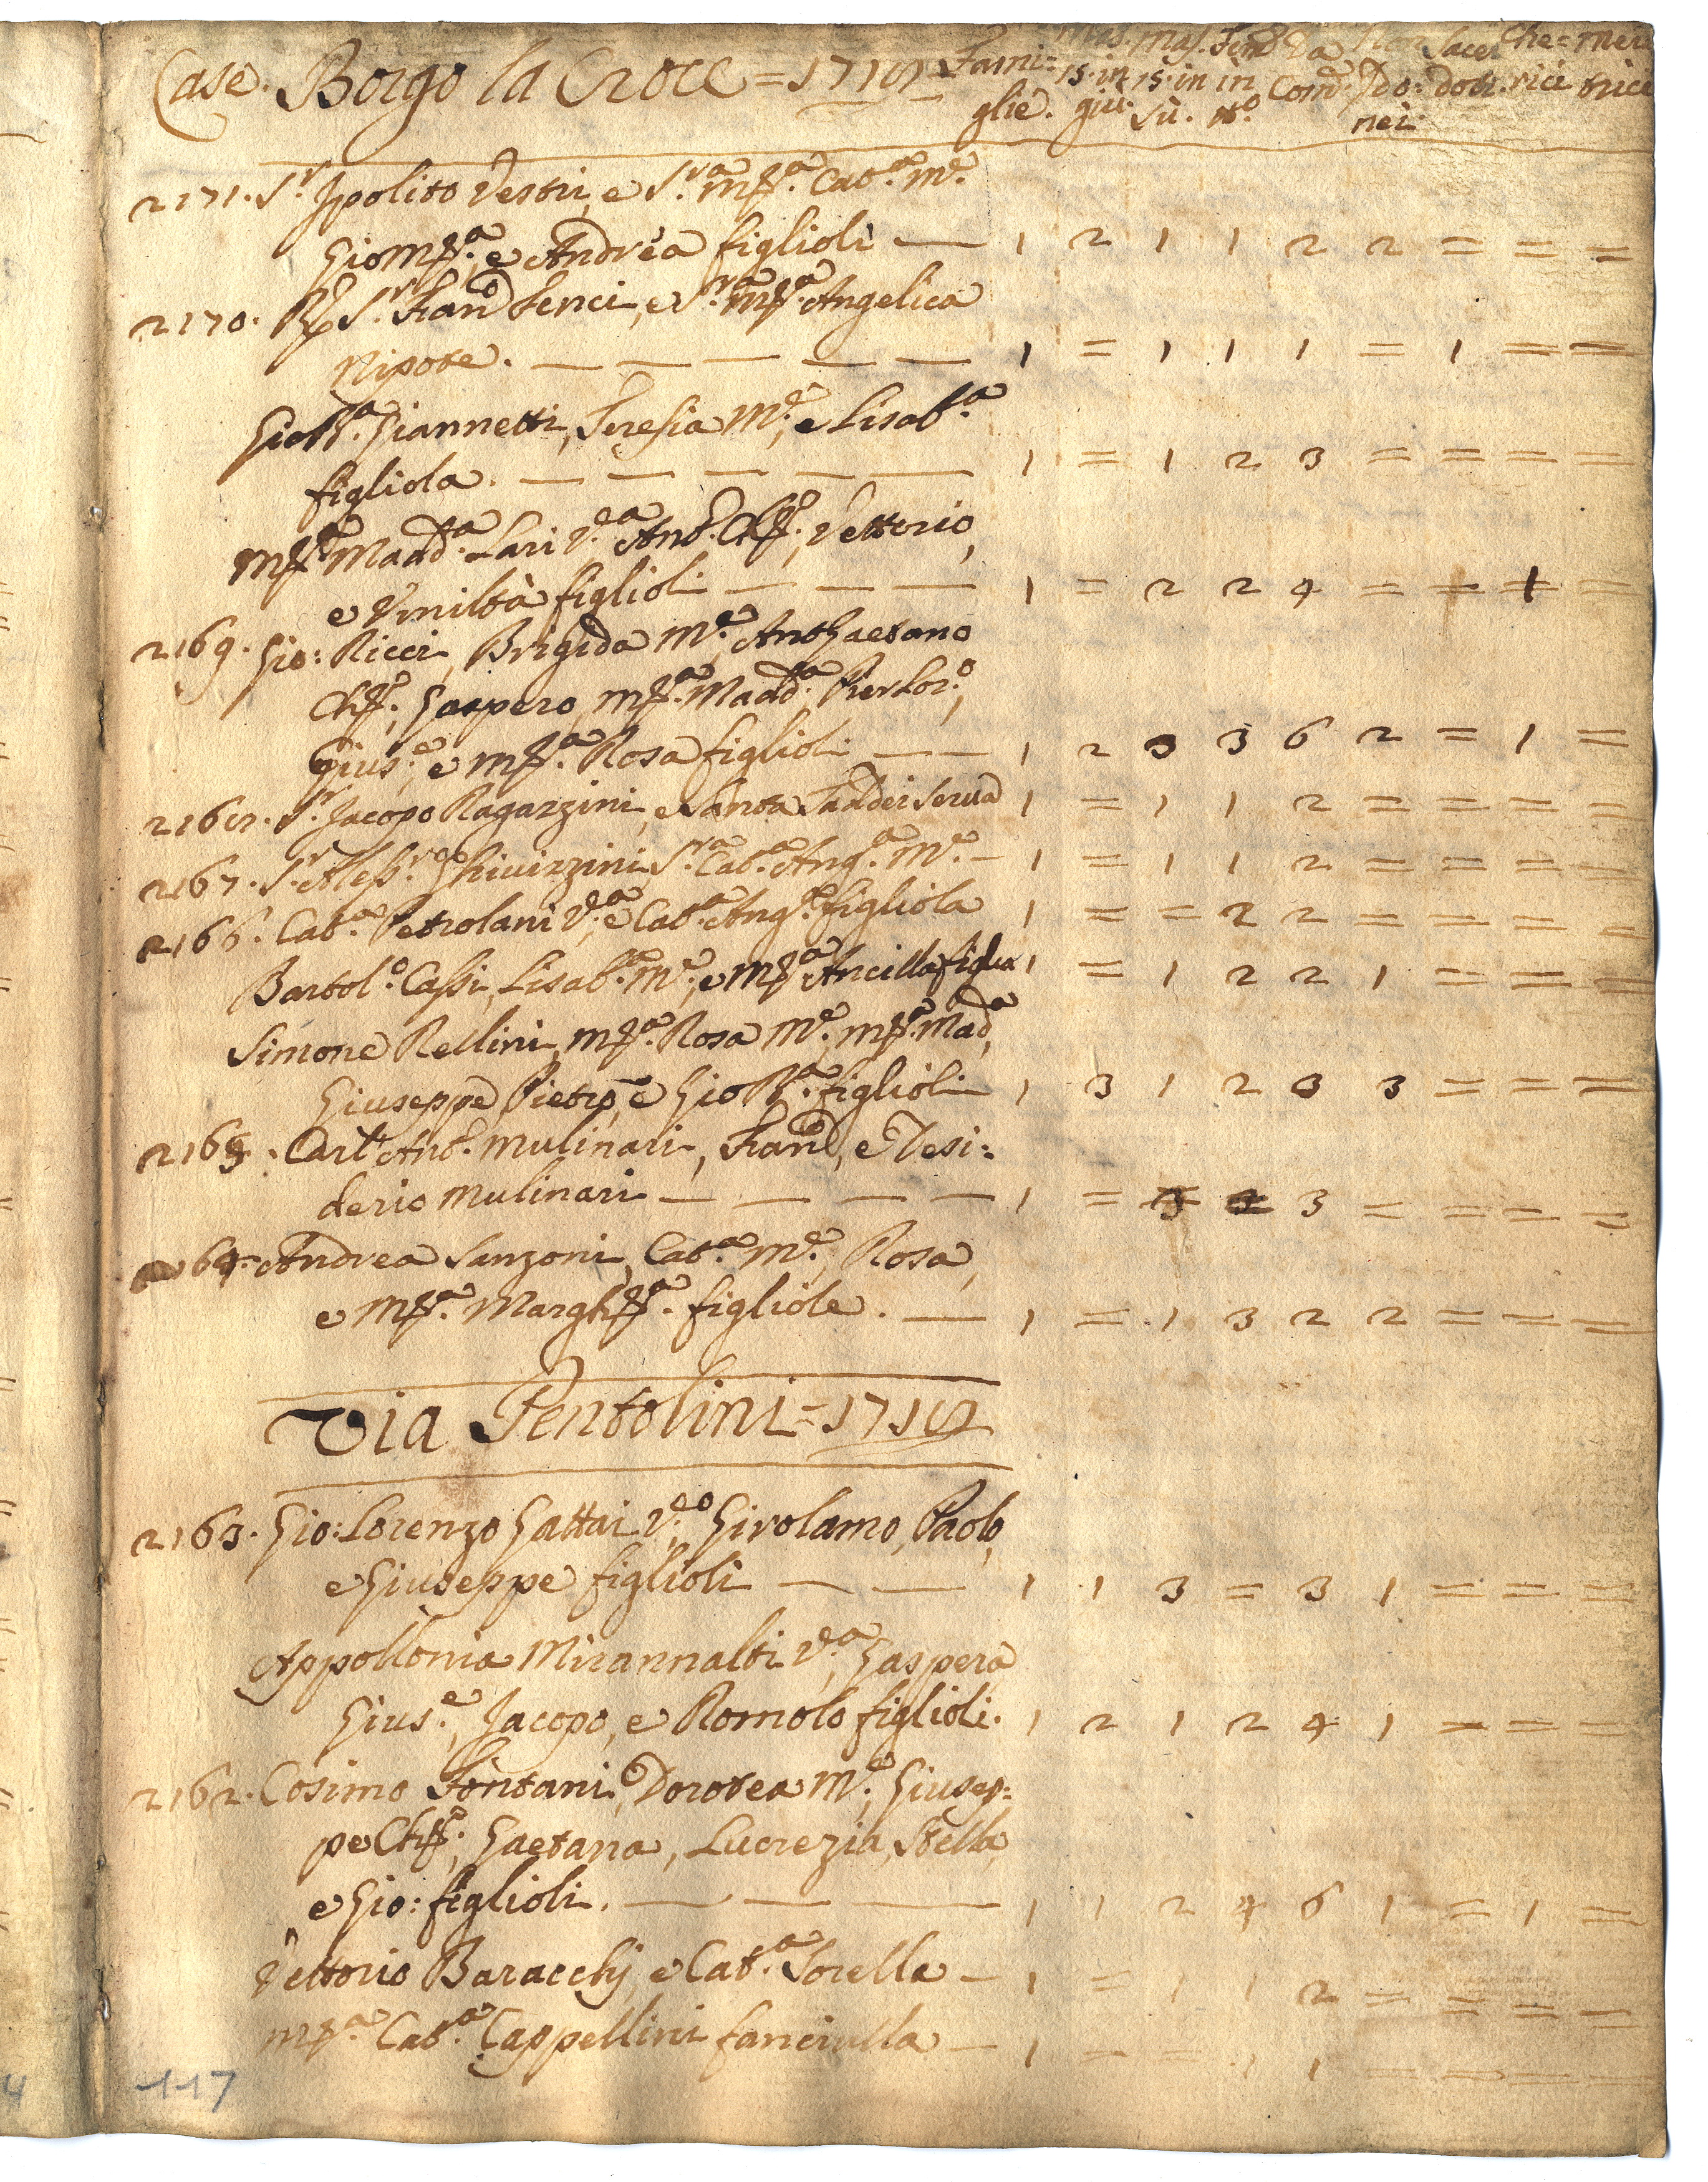 Case. Borgo la Croce = 1718 Fami= Mas. Mas. Fem. Da Non Sacer Che= Mere
15. in 15. in in Com. Ido: doti. rici trice
glie. giù. Sù. N.o nei
2171. S.r Ipolito Vestri, e S.ra M.a Cat.a M.e
Gio M.a, e Andrea figlioli — 1 2 1 1 2 2 = = =
2170. S.r Fran.co Fenci, e S.ra M.a Angelica
Nipote. — — — — — 1 = 1 1 1 = 1 = =
Gio B.a Giannetti, Teresia M.e, e Lisab.a
figliola. — — — — — 1 = 1 2 3 = = = =
M.a Madd.a Lari V.a Ant.o , Vettorio,
e Umiltà figlioli — — — 1 = 2 2 4 = = 1 =
2169. Gio: Ricci, Brigida M.e, Ant Gaetano
Gaspero, M.a Madd.a Pier Lor.o,
Gius.e, e M.a Rosa figlioli — — 1 2 3 3 6 2 = 1 =
2168. S.r Jacopo Ragazzini, e Santa Taddei Serva 1 = 1 1 2 = = = =
2167. S.r Aless.o Ghivizzini S.ra Cat.a Ang.a M.e — 1 = 1 1 2 = = = =
2166. Cat.a Petrolani V.a e Cat.a Ang.a figliola 1 = = 2 2 = = = =
Bartol.o Cassi, Lisab.a M.e, e M.a Ancilla figlia 1 = 1 2 2 1 = = =
Simone Rellini, M.a Rosa M.e, M.a Mad.a,
Giuseppe, Pietro, e Gio B.a figlioli 1 3 1 2 3 3 = = =
2165. Carl' Ant.o Mulinari, Fran.co, e Desi=
derio Mulinari — — — — 1 = 3 = 3 = = = =
2164. Andrea Sanzoni, Cat.a M.e, Rosa,
e M.a Margh.a figliole. — 1 = 1 3 2 2 = = =
Via Pentolini = 1718
2163. Gio: Lorenzo Gattai V.o Girolamo, Paolo,
e Giuseppe figlioli — — 1 1 3 = 3 1 = = =
Appollonia Mirannalti V.a, Gaspera
Gius.e, Jacopo, e Romolo figlioli. 1 2 1 2 4 1 = = =
2162. Cosimo Fontani, Dorotea M.e, Giusep=
pe , Gaetana, Lucrezia, Stella,
e Gio: figlioli. — — — 1 1 2 4 6 1 = 1 =
Vettorio Baracchj, e Cat.a Sorella — 1 = 1 1 2 = = = =
M.a Cat.a Cappellini fanciulla — 1 = = 1 1 = = = =
117